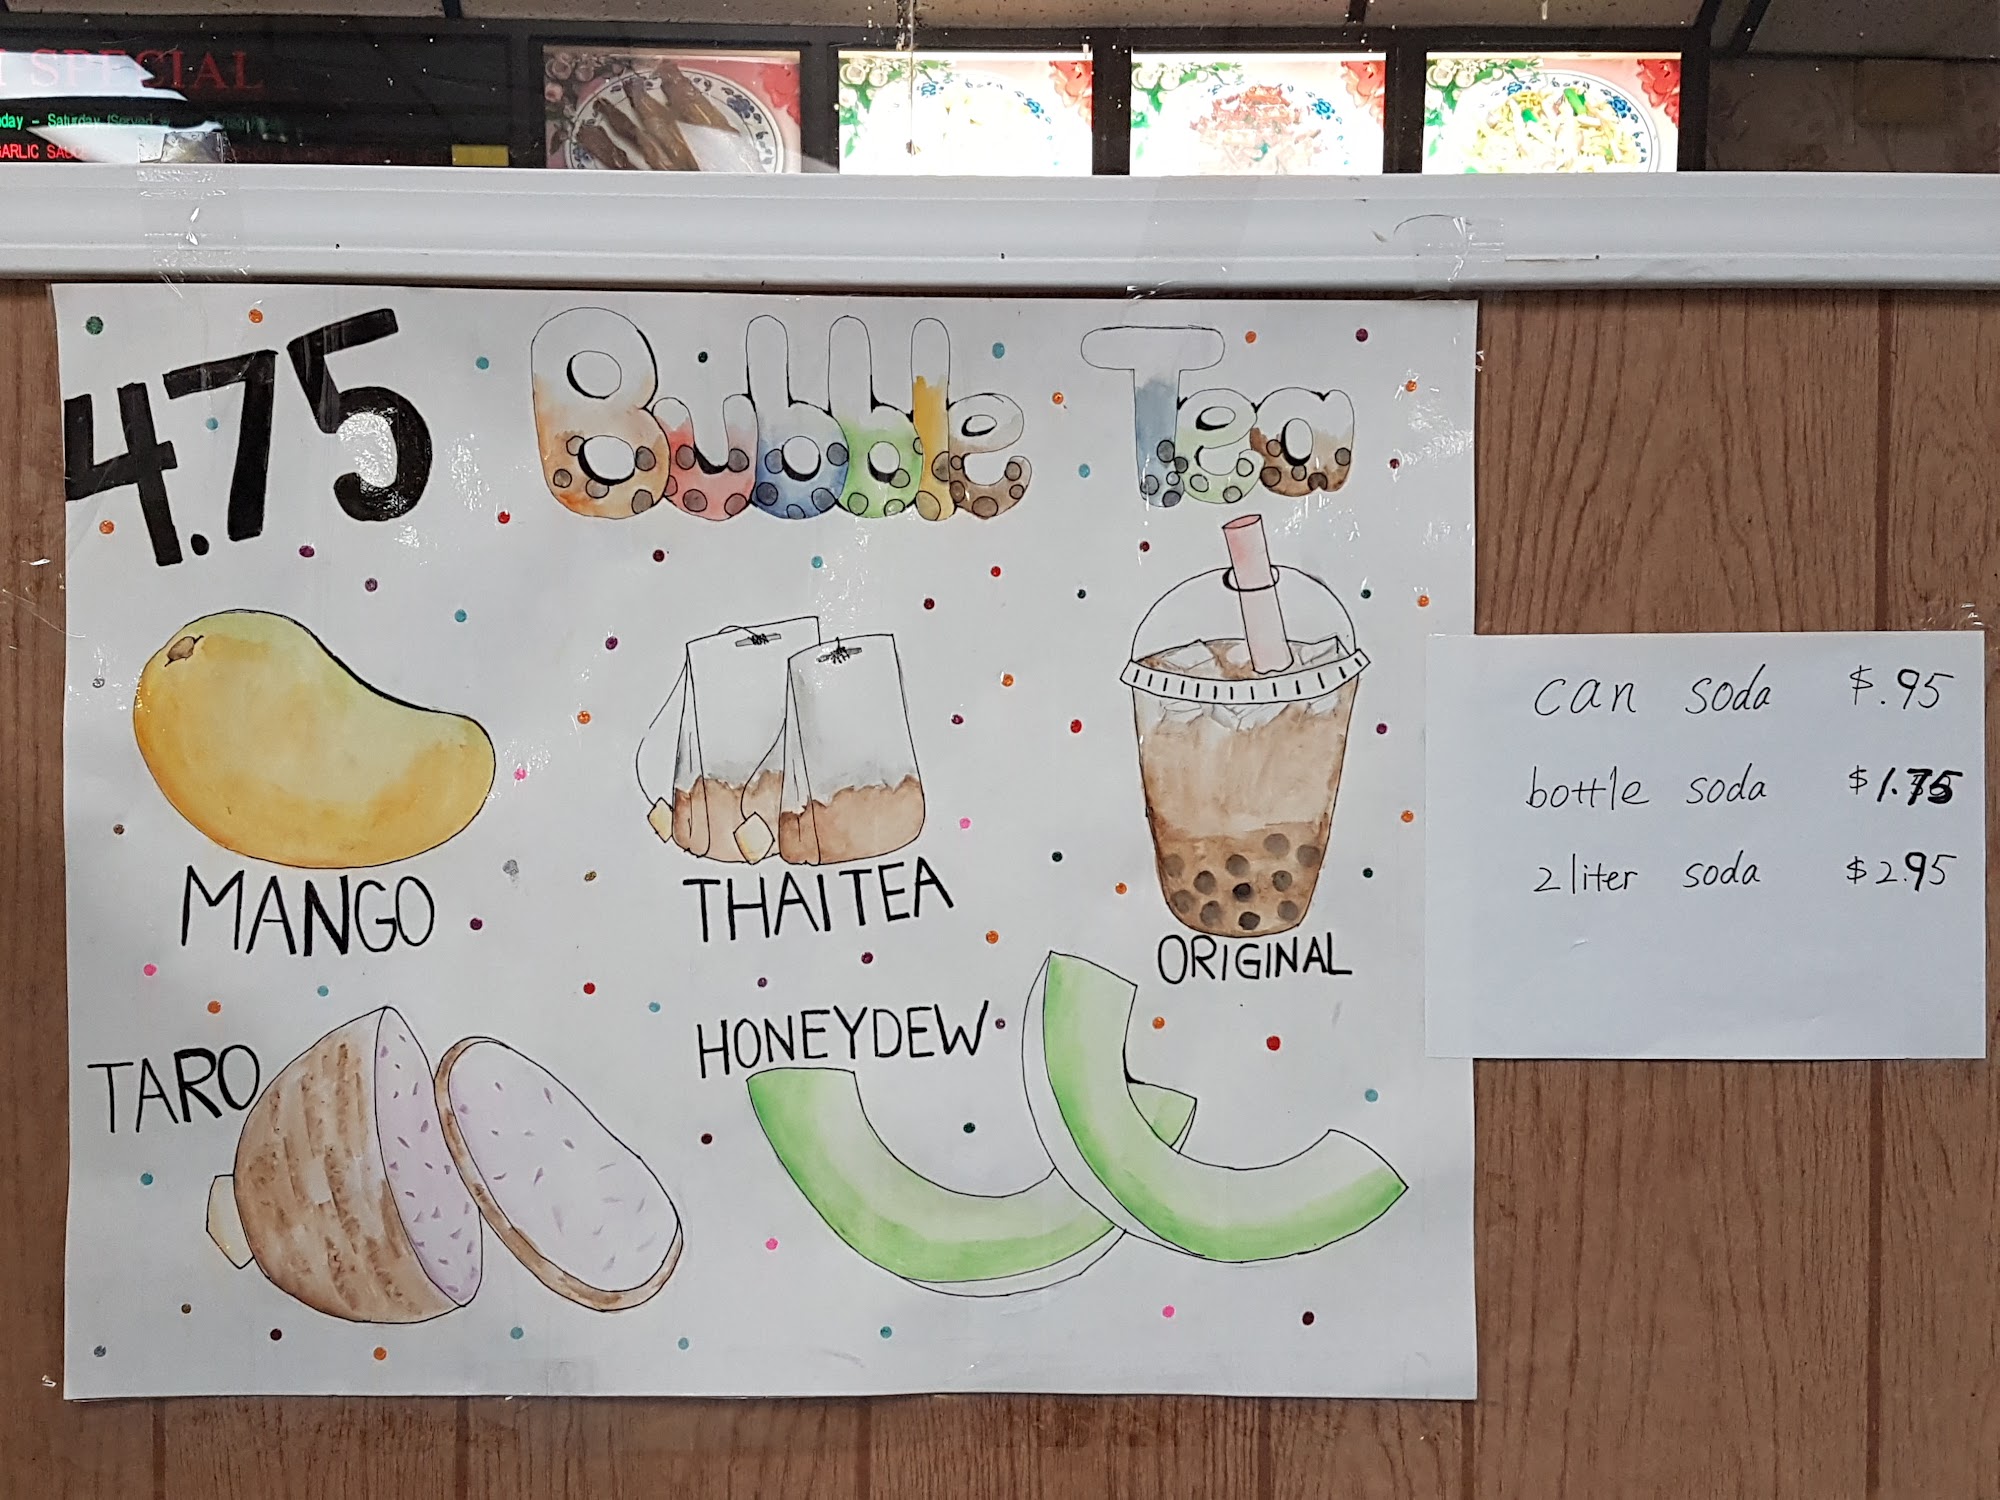 SPECIAL
day - Saturday (Served
GARLIC SAUCE
4.75 Bubble Tea
MANGO
THAI TEA
ORIGINAL
TARO
HONEYDEW
can soda $.95
bottle soda $1.75
2 liter soda $2.95